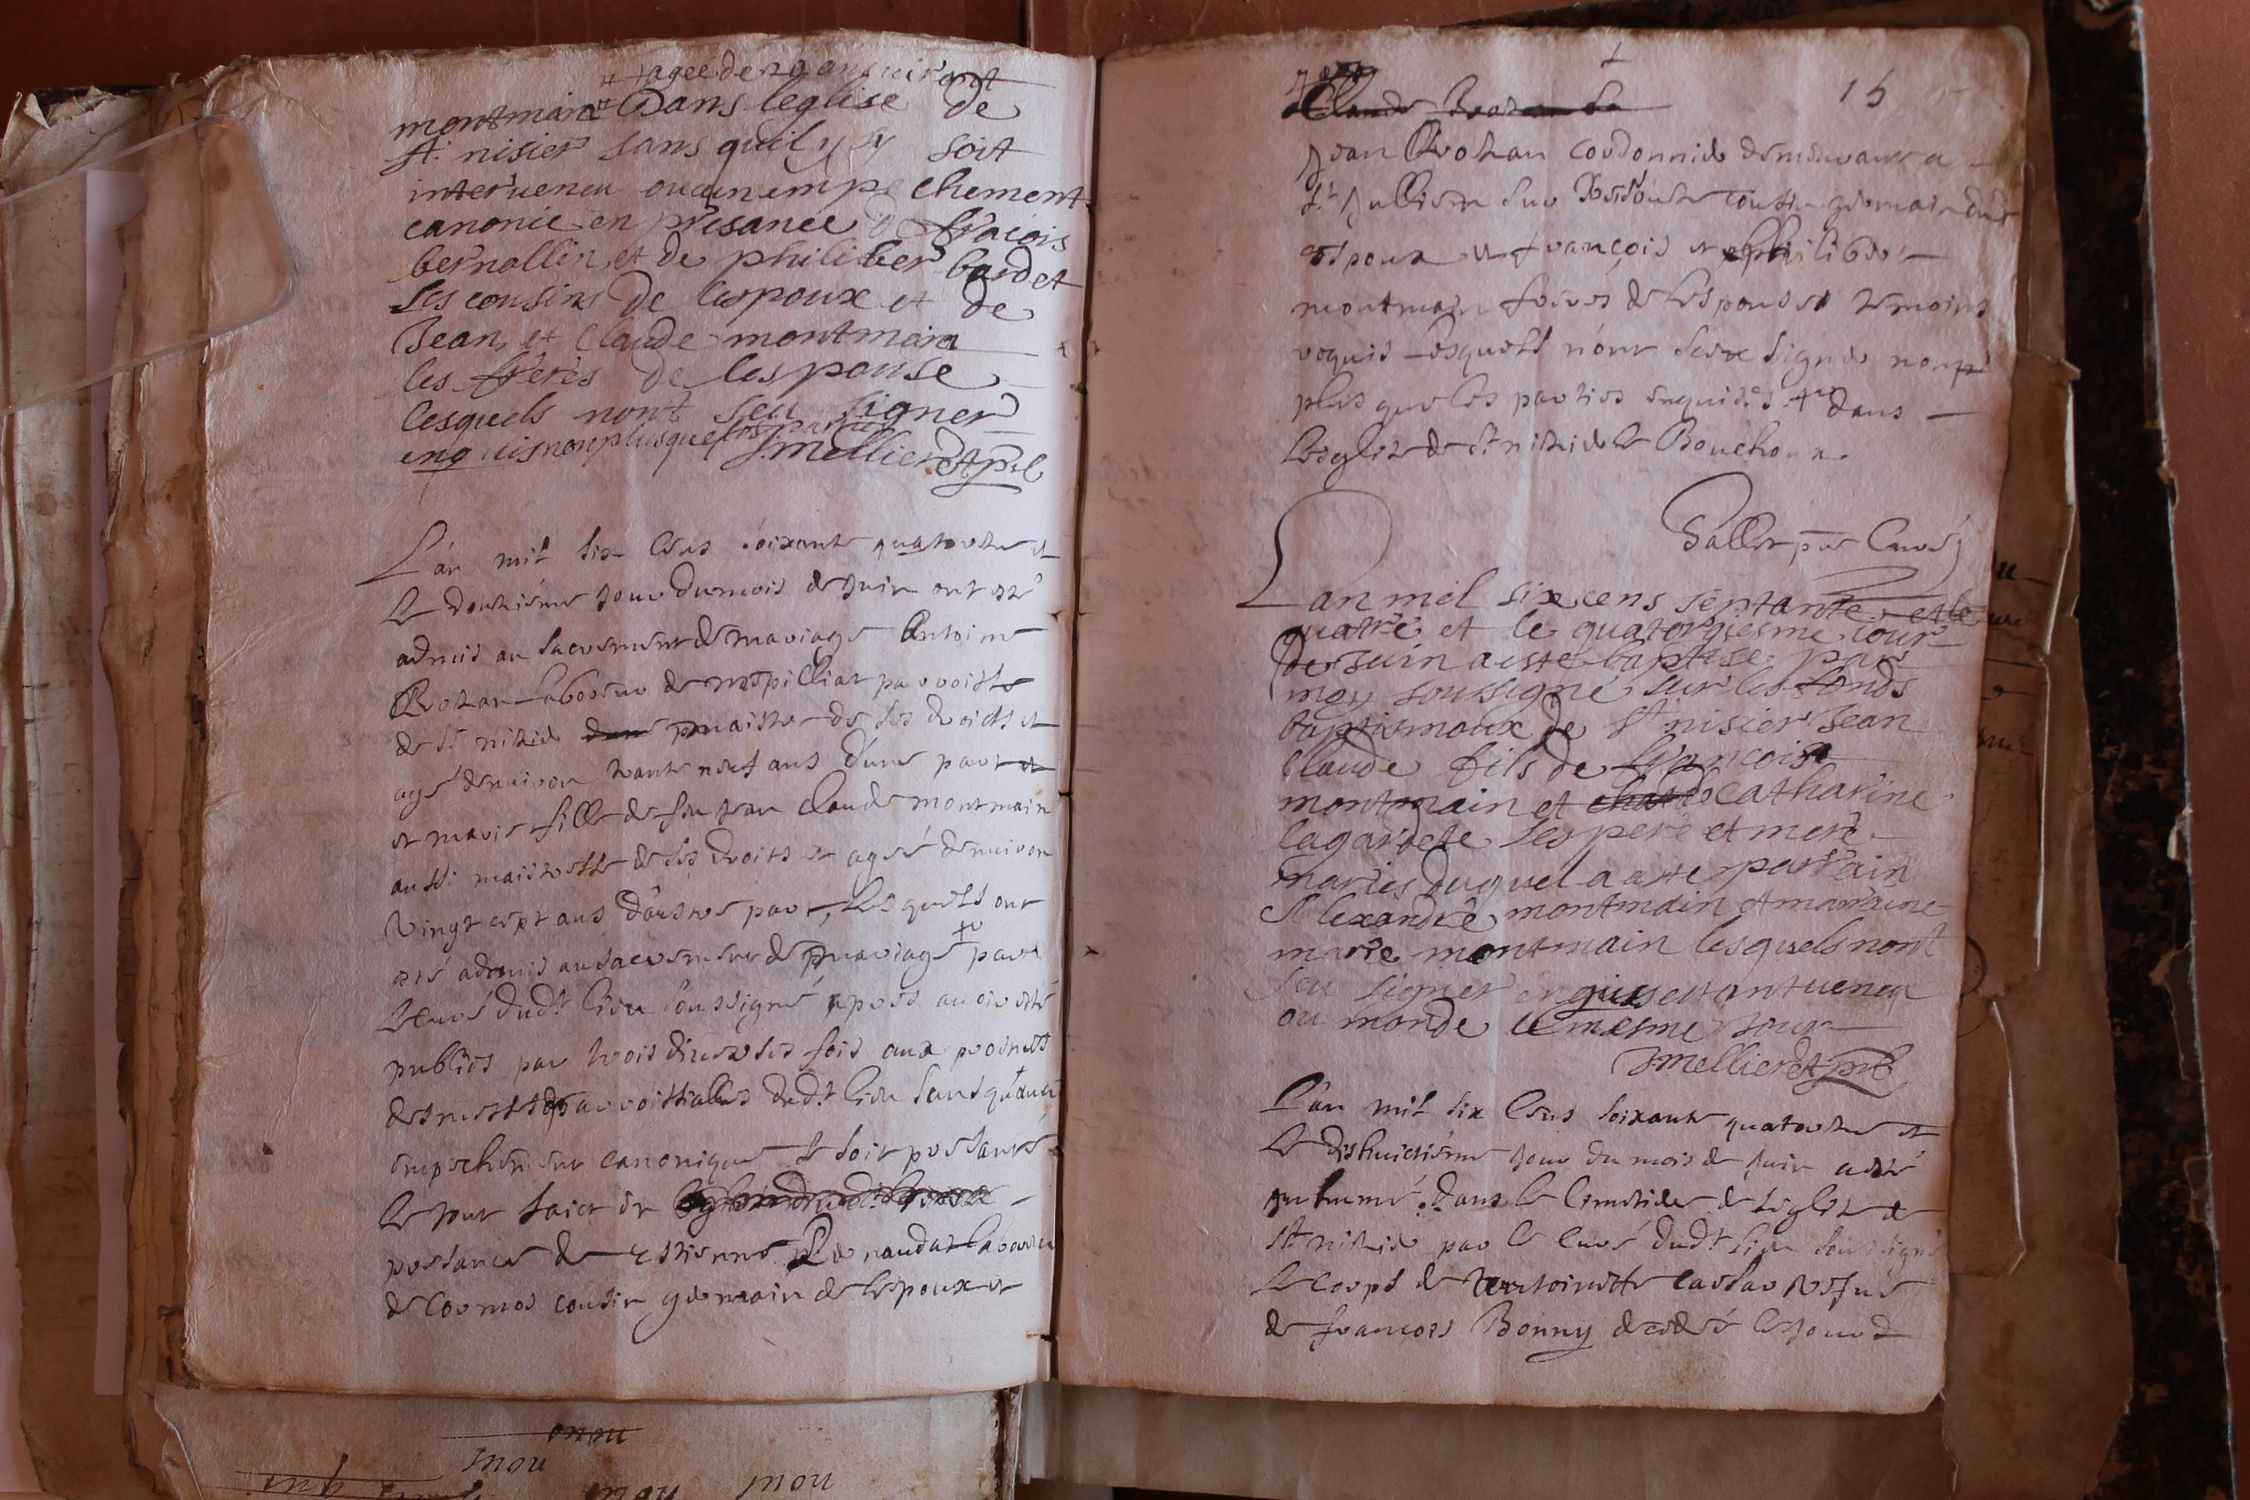 agee de 20 ans
montmain Dans leglise de
st. nisier sans quil y ay soit
interuenu aucun empechement
canonic en presance de fracois
bernollin et de philiber bardet
les cousins de lespoux et de
Jean et Claude montmain
les freres de lespouse
lesquels nont sceu signer
enquis non plus que les parties
J. mellier
L'an mil six Cens soixante quatorze et
Le douziéme jour du mois de Juin ont esté
admis au sacrement de mariage Antoine
Rohan laboureur de parroisse
de st. nisier maistre de ses droicts et
agé denuiron trante neuf ans d'une part
et marie fille de feu jean claude montmain
aussi maistresse de ses droits et agée denuiron
vingt cept ans d'austre part, lesquels ont
esté admis au sacrement de mariage par
Le curé dudt. lieu soussigné apres auoir esté
publiés par trois diuerses fois aux prosnes
des messes parroissialles dudt. lieu sans qu'aucun
empechement canonique se soit
Le tout faict en
presance de Estienne Renaudat laboureur
de Cormos cousin germain de lespoux et
15
Jean Rohan cordonnier demeurant a
st. Jullien sur cousin germain dudt
espoux et françois et philiber
montmain freres de lespouse temoins
requis lesquels n'ont sceu signer non
plus que les parties enquises dans
Leglise de st. nisier le Bouchoux.
Gallet curé
Lan mil six cens septante et le
quatre et le quatorziesme iour
de Juin a este baptise par
moy soussigné sur les fonds
baptismaux de St nisier Jean
Claude fils de francois
montmain et catharine
lagardete ses pere et mere
maries duquel a este parrain
Alexandre montmain et maraine
marie montmain lesquels nont
sceu signer enquis estant uenu
au monde le mesme jour
J. mellier
L'an mil six Cens soixante quatorze et
Le dishuictiéme jour du mois de Juin a esté
inhumé dans le cimetiere de leglise de
st. nisier par le curé dudt. lieu soussigné
Le corps de Antoinette vefue
de francois Bonny decedée le jour d
onou
mou
mou
mou